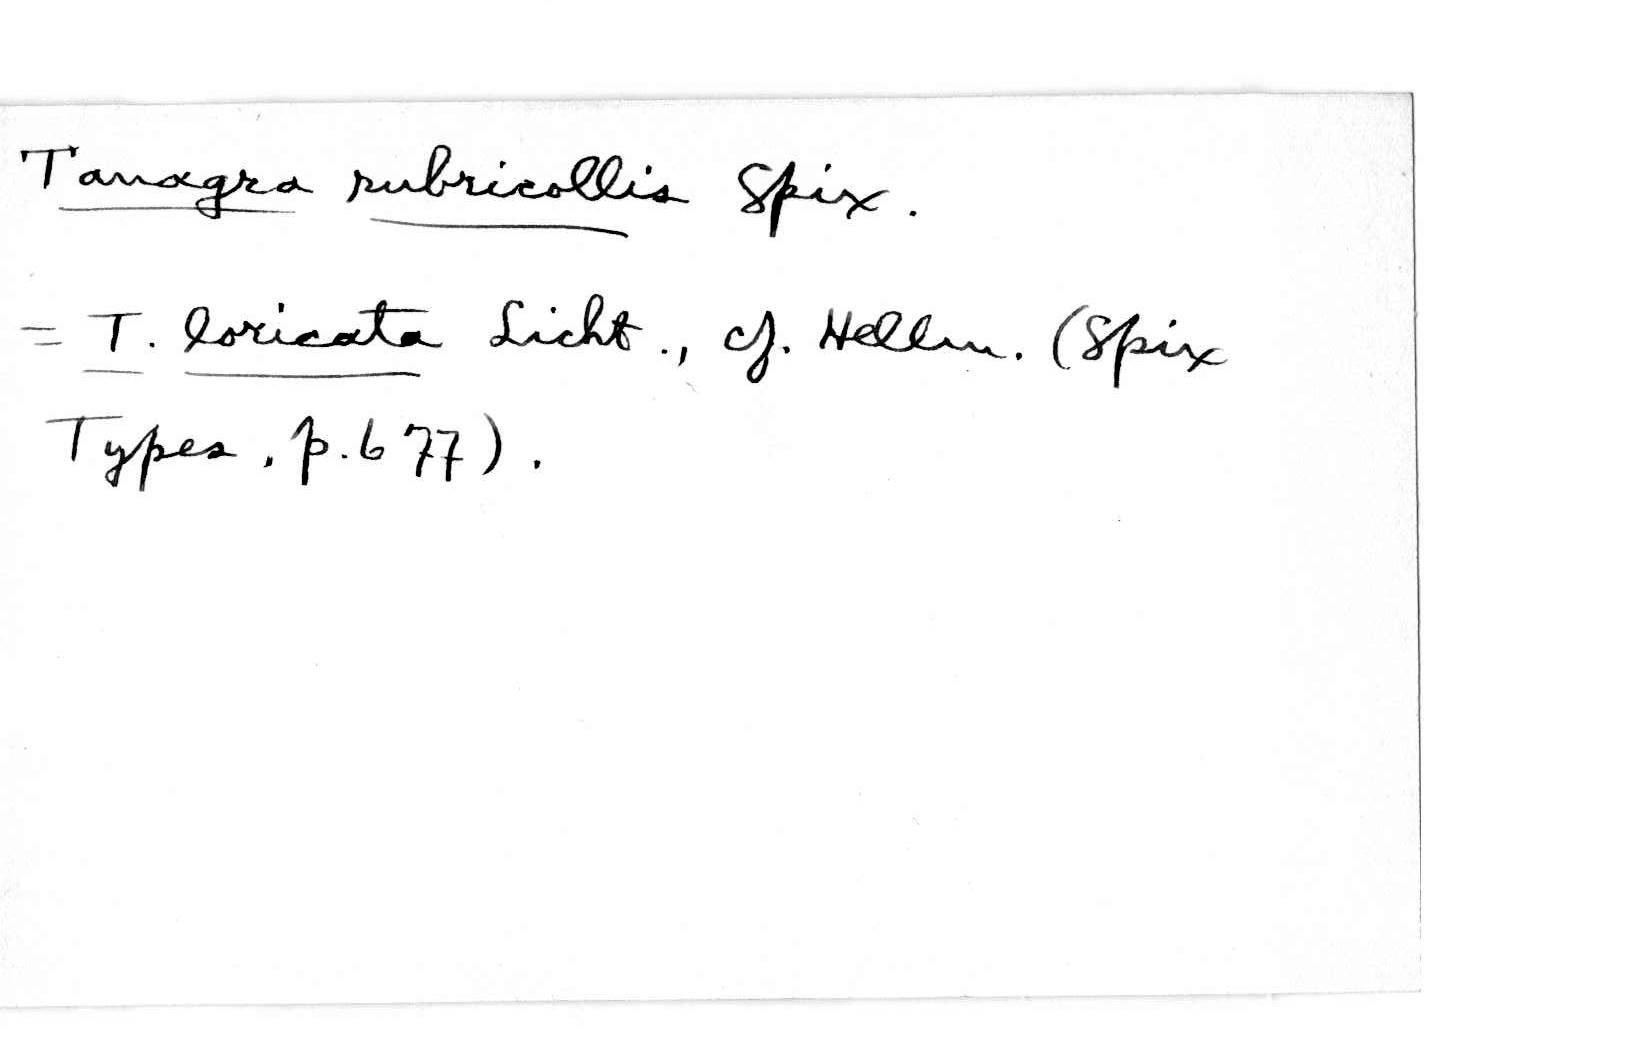 Tanagra rubricollis Spix.
= T. loricata Licht., cf. Hellm. (Spix
Types, p. 677).